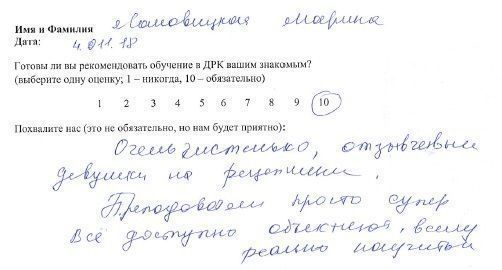 Имя и Фамилия Марина
Дата: 4.011.18
Готовы ли вы рекомендовать обучение в ДРК вашим знакомым?
(выберите одну оценку; 1 – никогда, 10 – обязательно)
1 2 3 4 5 6 7 8 9 10
Похвалите нас (это не обязательно, но нам будет приятно):
Очень чистенько, отзывчевые
девушки на рецепшини.
Преподователи просто супер
Всё доступно объясняют, всему
реально научиться